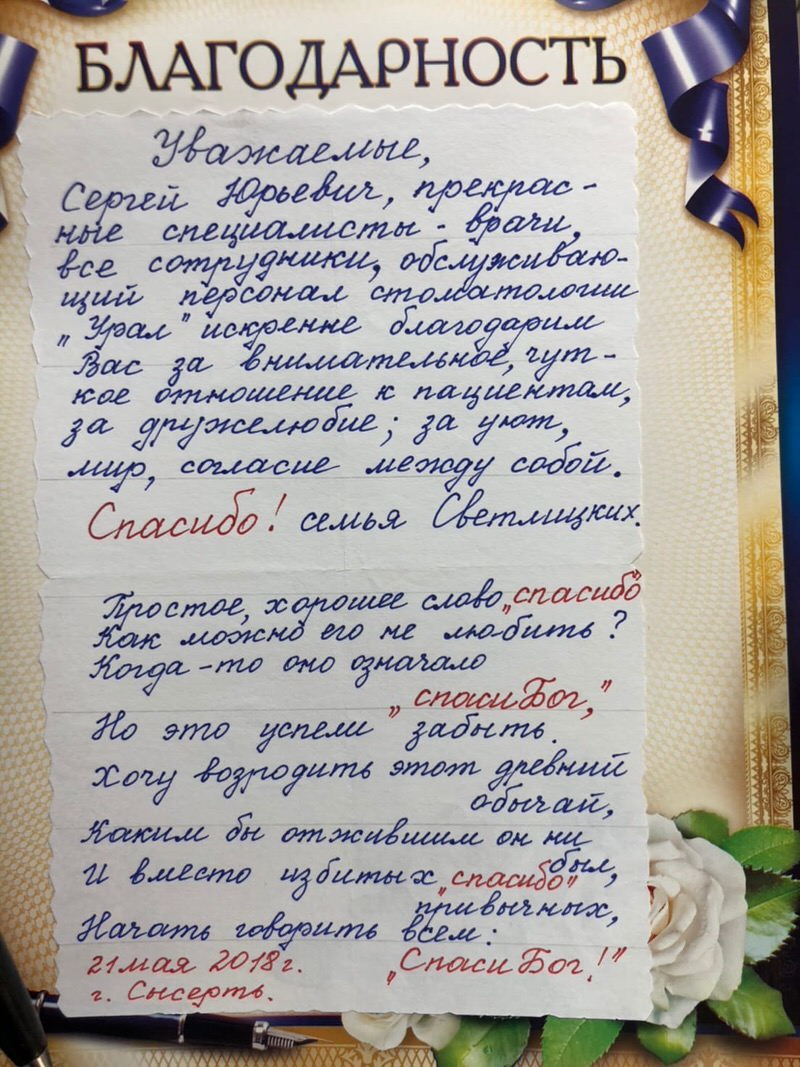 БЛАГОДАРНОСТЬ
Уважаемые,
Сергей Юрьевич, прекрас-
ные специалисты - врачи,
все сотрудники, обслуживаю-
щий персонал стоматологии
„Урал" искренне благодарим
Вас за внимательное, чут-
кое отношение к пациентам,
за дружелюбие; за уют,
мир, согласие между собой.
Спасибо! семья Светлицких.
Простое, хорошее слово „спасибо"
Как можно его не любить?
Когда-то оно означало
„спаси Бог,"
Но это успели забыть.
Хочу возродить этот древний
обычай,
Каким бы отжившим он ни
был,
И вместо избитых „спасибо"
привычных,
Начать говорить всем:
21 мая 2018 г. „Спаси Бог!"
г. Сысерть.